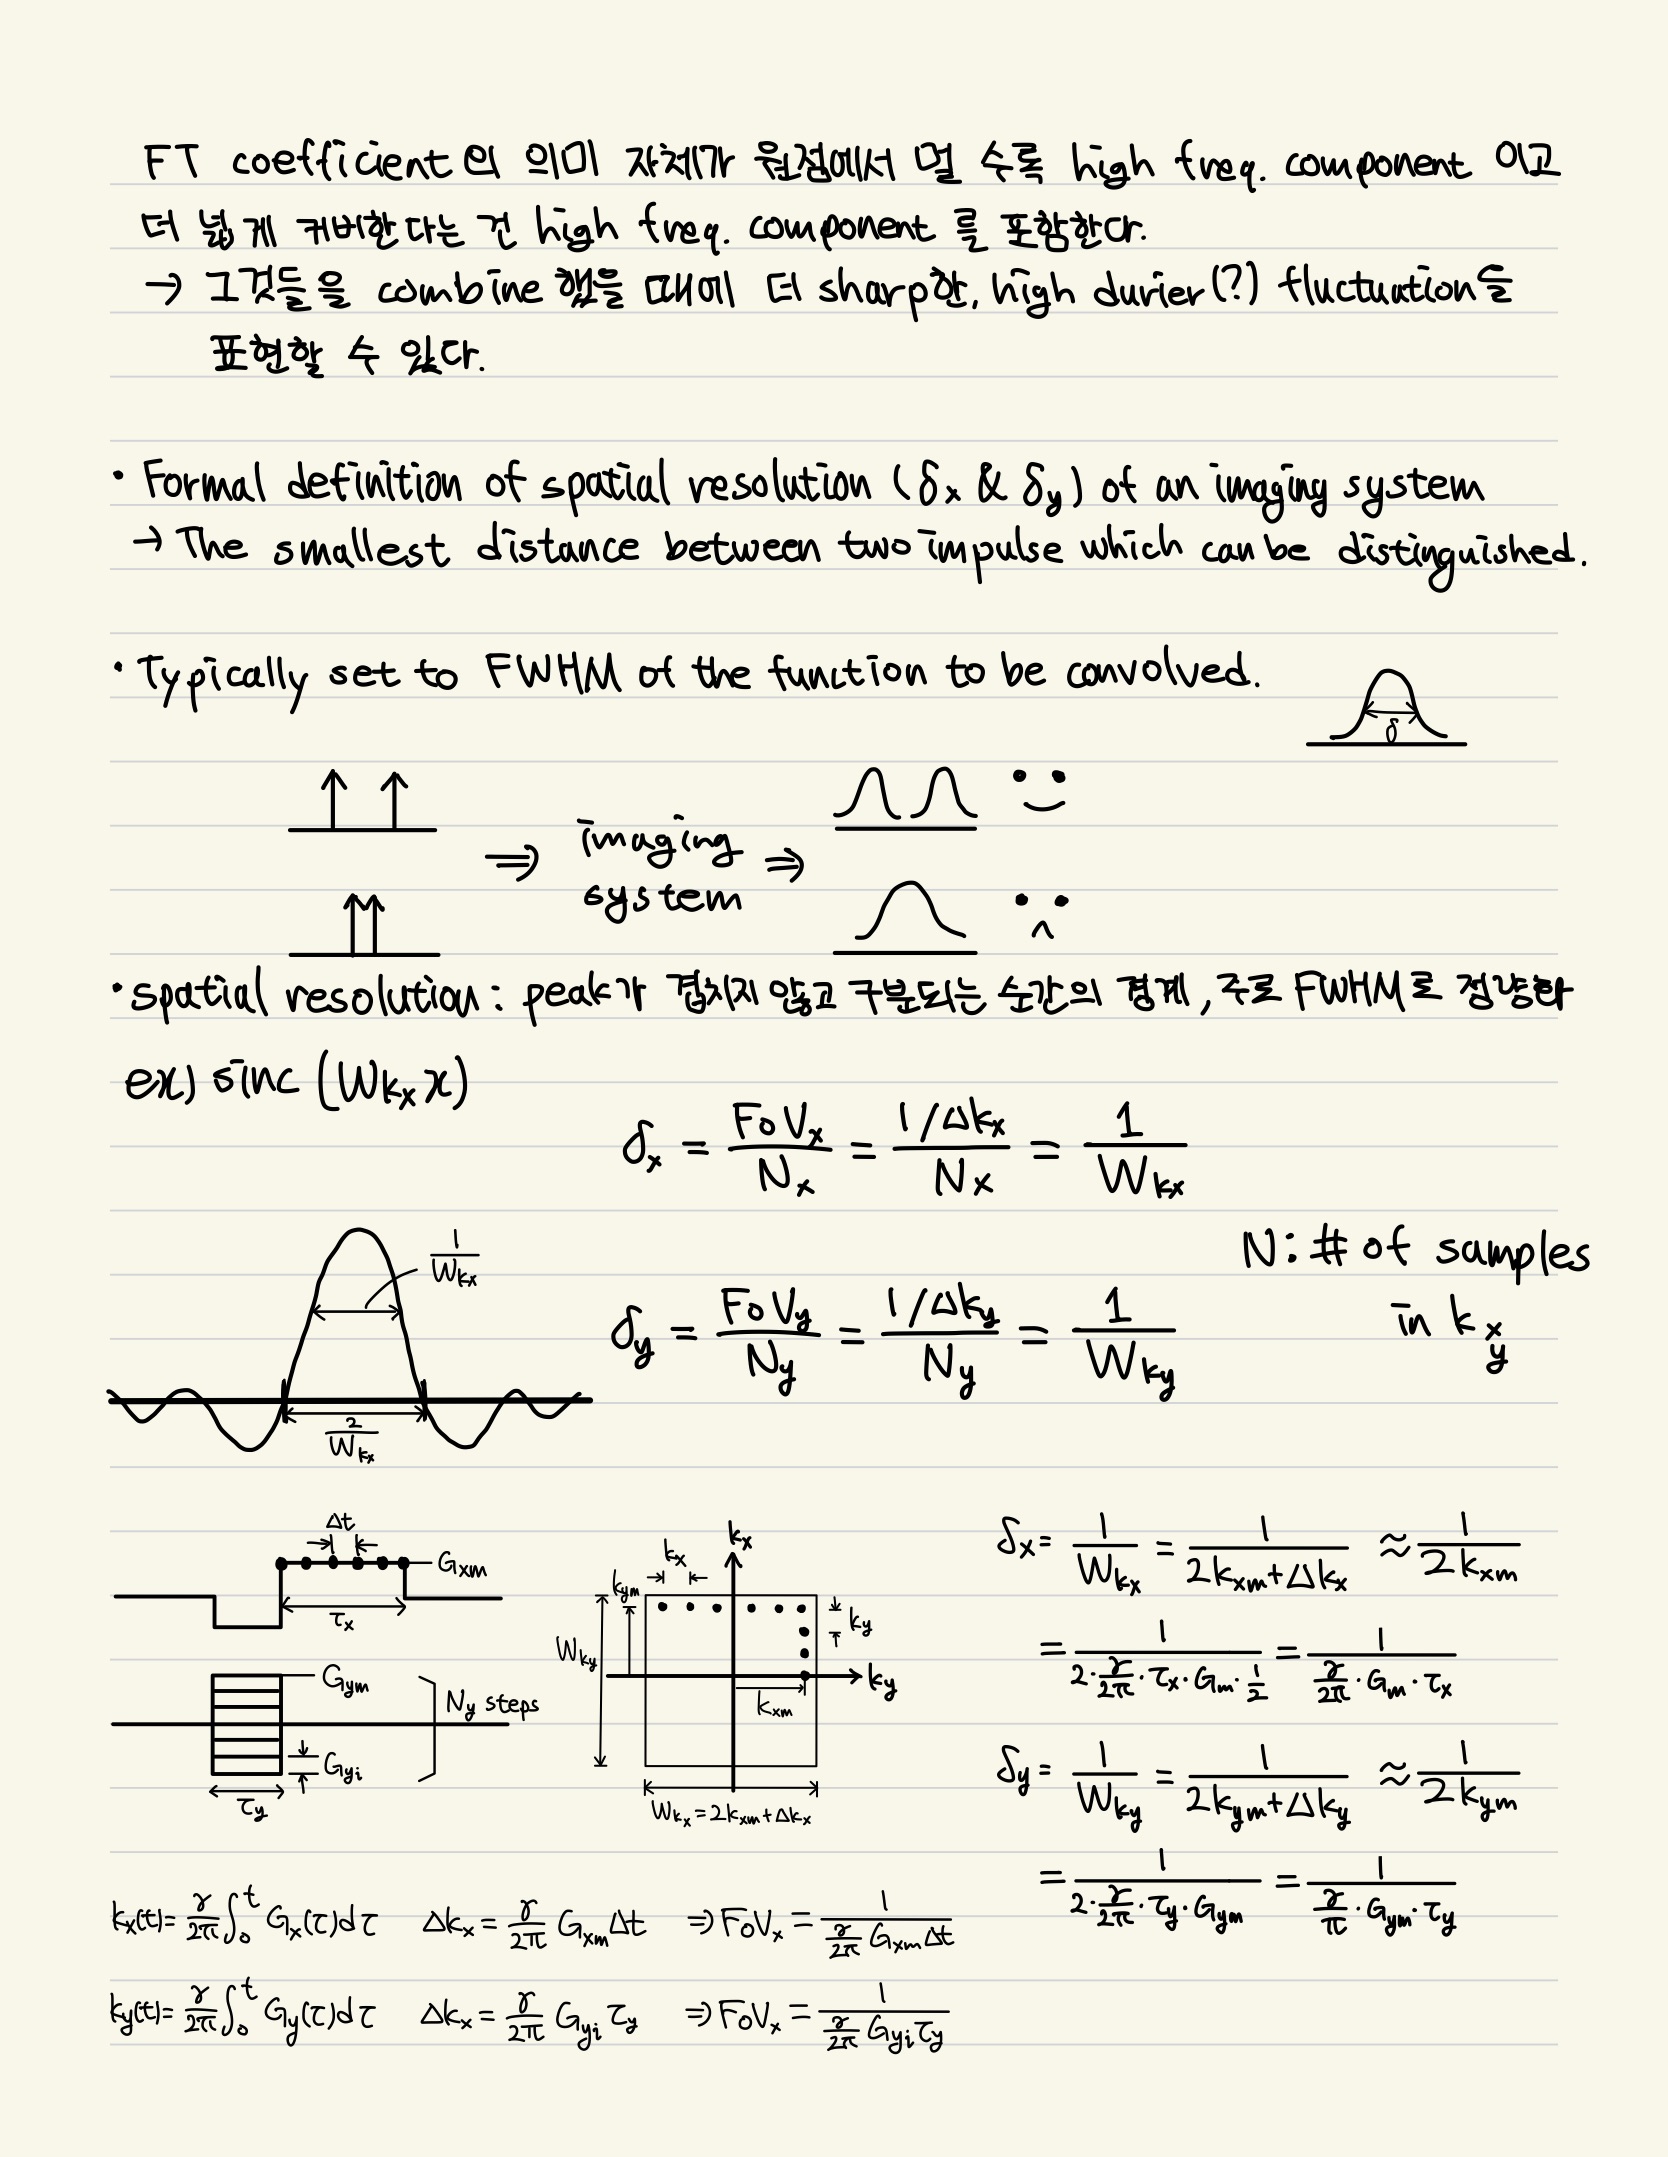 FT coefficient의 의미 자체가 원점에서 멀 수록 high freq. component 이고
더 넓게 커버한다는 건 high freq. component 를 포함한다.
→ 그것들을 combine 했을 때에 더 sharp한, high durier(?) fluctuation을
표현할 수 있다.
· Formal definition of spatial resolution (δx & δy) of an imaging system
→ The smallest distance between two impulse which can be distinguished.
· Typically set to FWHM of the function to be convolved.
δ
⇒ imaging system ⇒
· spatial resolution : peak가 겹치지 않고 구분되는 순간의 경계, 주로 FWHM로 정량화
ex) sinc (Wkx x)
δx = FoVx / Nx = (1/Δkx) / Nx = 1 / Wkx
1 / Wkx
N: # of samples
in k x y
δy = FoVy / Ny = (1/Δky) / Ny = 1 / Wky
2 / Wkx
Δt
Gxm
τx
Gym
Ny steps
Gyi
τy
kx
kx
kym
ky
Wky
ky
kxm
Wkx = 2kxm + Δkx
δx = 1 / Wkx = 1 / (2kxm + Δkx) ≈ 1 / 2kxm
= 1 / (2 · γ/2π · τx · Gm · 1/2) = 1 / (γ/2π · Gm · τx)
δy = 1 / Wky = 1 / (2kym + Δky) ≈ 1 / 2kym
= 1 / (2 · γ/2π · τy · Gym) = 1 / (γ/π · Gym · τy)
kx(t) = γ/2π ∫₀ᵗ Gx(τ)dτ Δkx = γ/2π Gxm Δt ⇒ FoVx = 1 / (γ/2π Gxm Δt)
ky(t) = γ/2π ∫₀ᵗ Gy(τ)dτ Δkx = γ/2π Gyi τy ⇒ FoVx = 1 / (γ/2π Gyi τy)